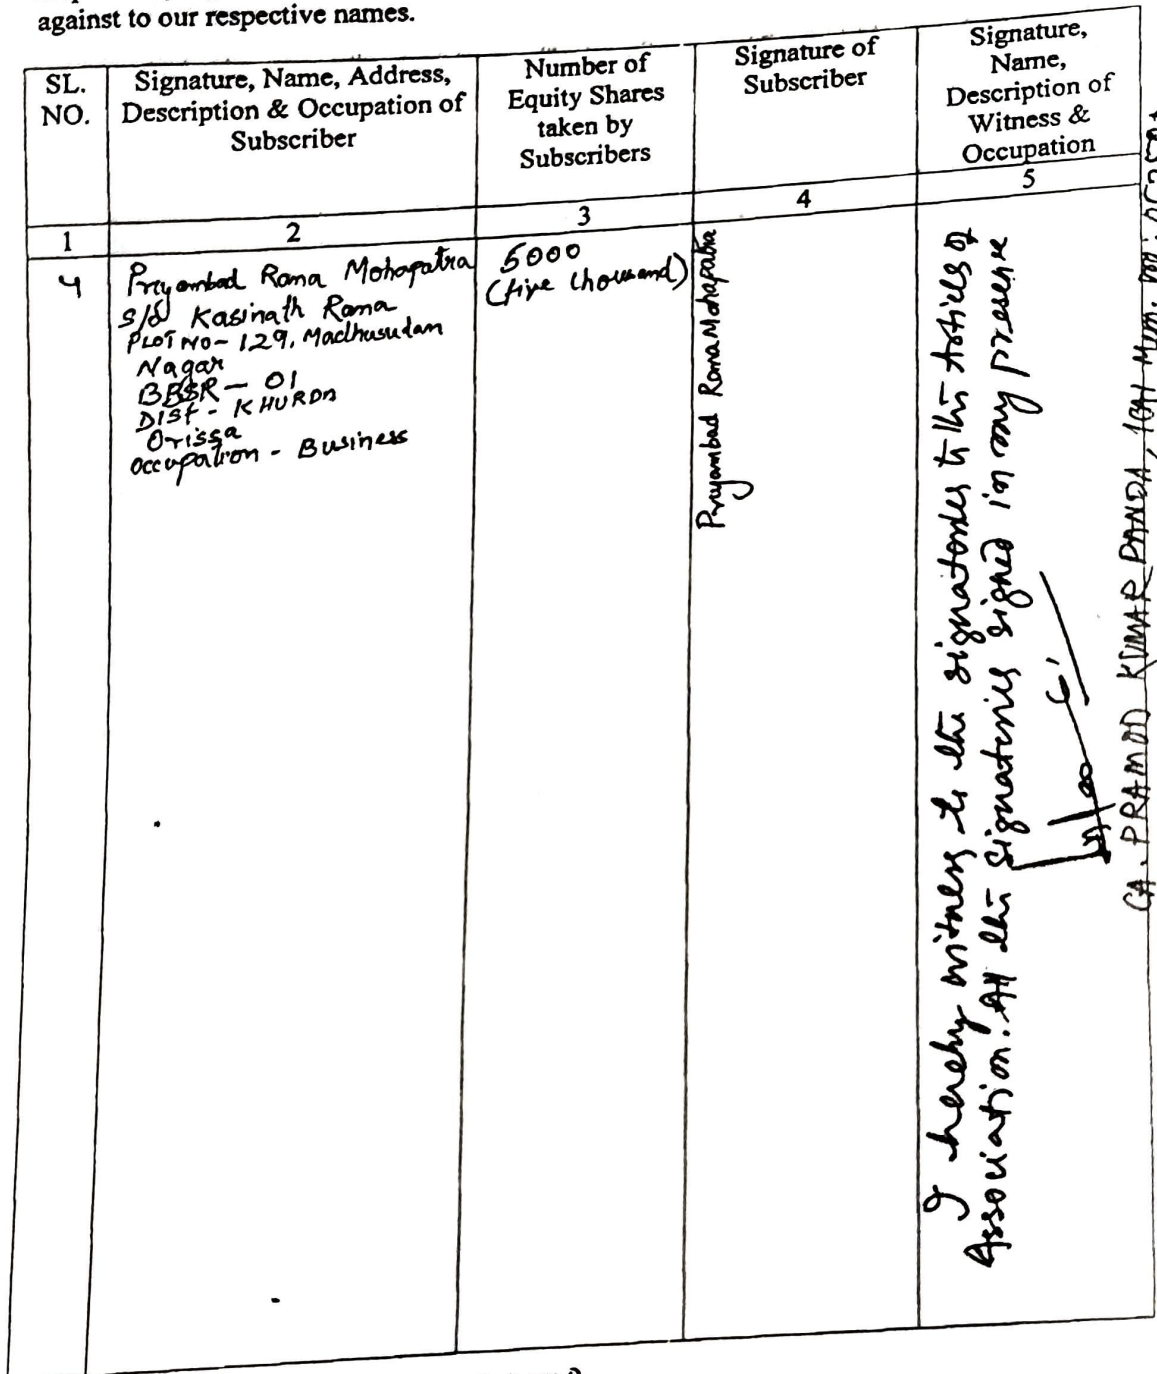 against to our respective names.
SL.
NO.
Signature, Name, Address,
Description & Occupation of
Subscriber
Number of
Equity Shares
taken by
Subscribers
Signature of
Subscriber
Signature,
Name,
Description of
Witness &
Occupation
1
2
3
4
5
4
Priyambad Rama Mohapatra
S/o Kasinath Rama
PLOT NO- 129, Madhusudan
Nagar
BBSR - 01
DIST - KHURDA
Orissa
Occupation - Business
5000
(five thousand)
Priyambad Rama Mohapatra
I hereby witness to the signatories to this Articles of
Association. All the signatories signed in my presence
CA. PRAMOD KUMAR PANDA, ICAI Mem.